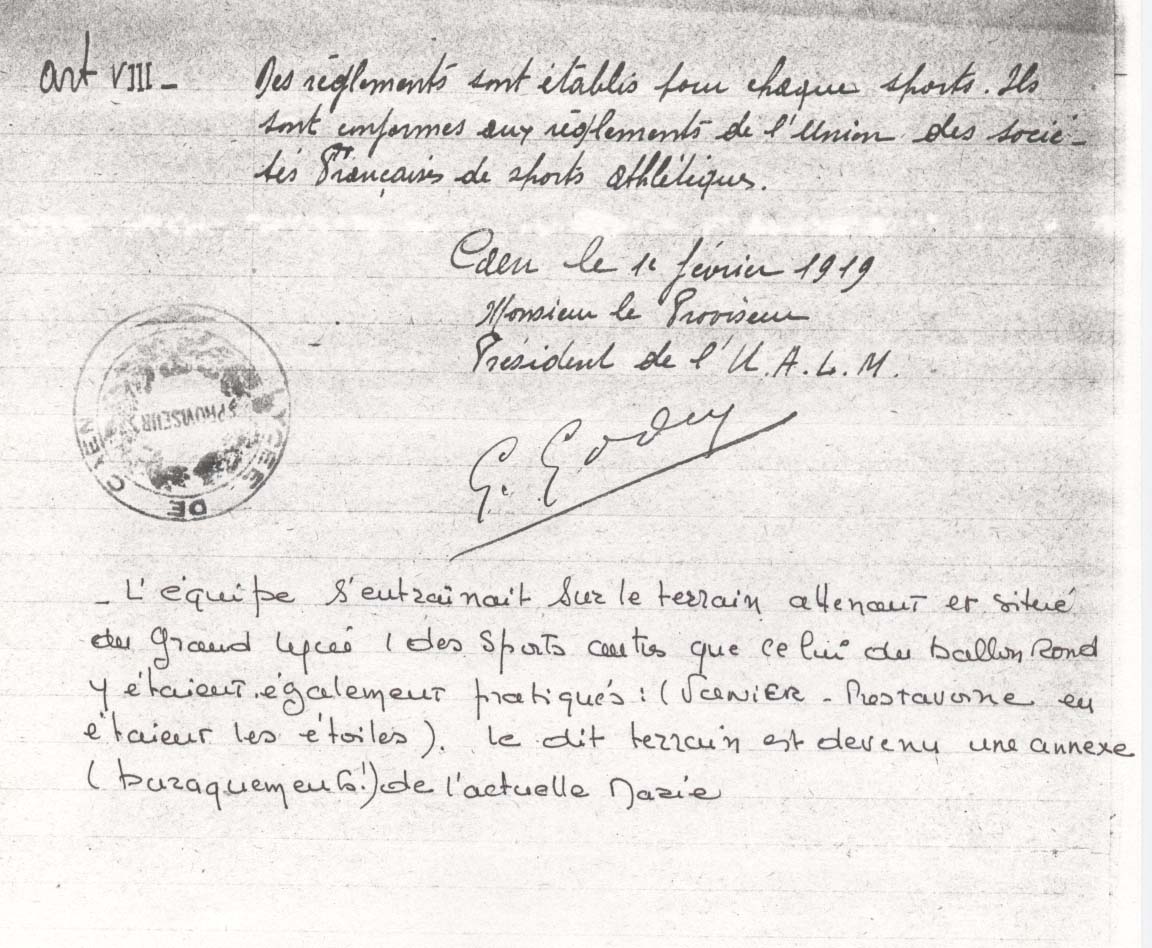 art VIII - Des règlements sont établis pour chaque sports. Ils
sont conformes aux règlements de l'Union des socié-
tés Françaises de sports athlétiques.
Caen le 1er février 1919
Monsieur le Proviseur
Président de l'U.A.L.M.
G. Godey
LYCEE DE CAEN
PROVISEUR
- L'équipe s'entraînait sur le terrain attenant et situé
du Grand Lycée (des Sports autres que celui du ballon Rond
y étaient également pratiqués : ( - Prestavoine en
étaient les étoiles). Le dit terrain est devenu une annexe
(baraquements!) de l'actuelle Mairie